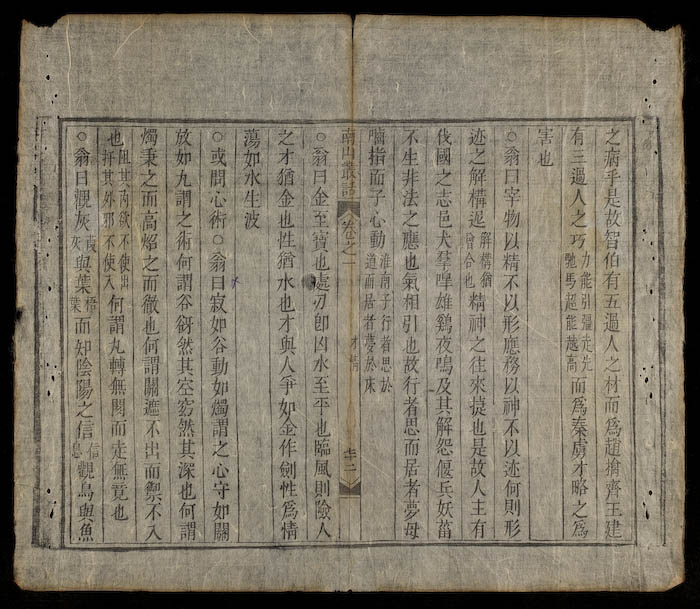 之病乎是故智伯有五過人之材而爲趙擒齊王建
有三過人之巧力能引彊走先馳馬超能越高而爲秦虜才略之爲
害也
○翁曰宰物以精不以形應務以神不以迹何則形
迹之解構返解構猶會合也精神之往來捷也是故人主有
伐國之志邑犬羣嘷雄鷄夜鳴及其解怨偃兵妖菑
不生非法之應也氣相引也故行者思而居者夢母
囓指而子心動淮南子行者思於道而居者夢於床
南山叢話 卷之一 才情 十二
○翁曰金至寶也處刃卽凶水至平也臨風則險人
之才猶金也性猶水也才與人爭如金作劍性爲情
蕩如水生波
○或問心術○翁曰寂如谷動如燭謂之心守如關
放如九謂之術何謂谷谺然其空窈然其深也何謂
燭秉之而高焰之而徹也何謂關遮不出而禦不入
也阻其內欲不使出扞其外邪不使入何謂丸轉無閡而走無竟也
○翁曰觀灰葭灰與葉梧葉而知陰陽之信信息觀鳥與魚